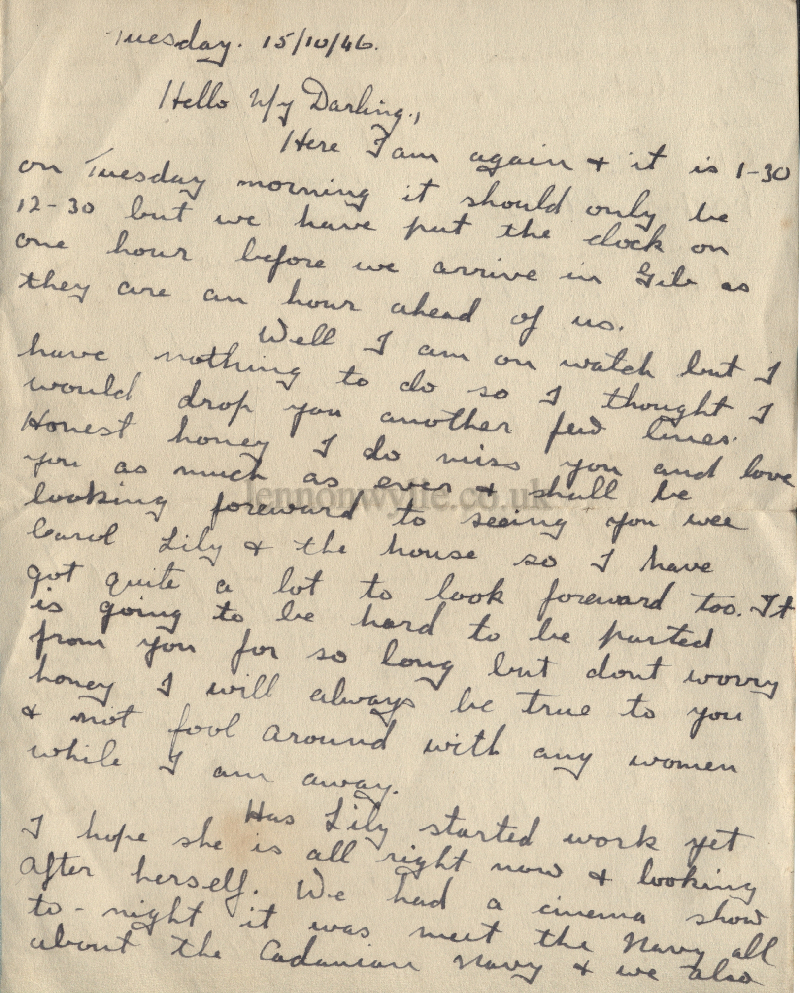 Tuesday. 15/10/46.
Hello My Darling.,
Here I am again & it is 1-30
on Tuesday morning it should only be
12-30 but we have put the clock on
one hour before we arrive in Gib as
they are an hour ahead of us.
Well I am on watch but I
have nothing to do so I thought I
would drop you another few lines.
Honest honey I do miss you and love
you as much as ever & shall be
lennonwylie.co.uk
looking foreward to seeing you wee
Carol Lily & the house so I have
got quite a lot to look foreward too. It
is going to be hard to be parted
from you for so long but dont worry
honey I will always be true to you
& not fool around with any women
while I am away.
Has Lily started work yet
I hope she is all right now & looking
after herself. We had a cinema show
to-night it was meet the Navy all
about the Cadanian Navy & we also